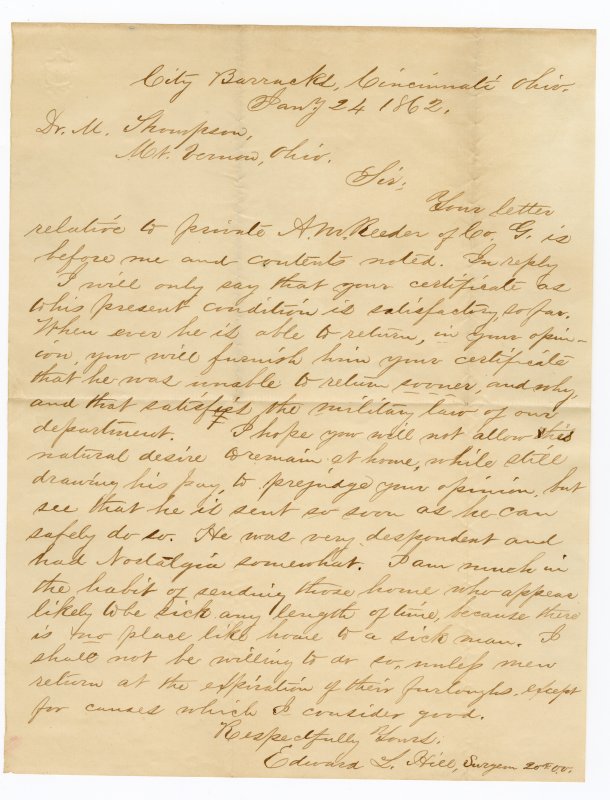 City Barracks, Cincinnati Ohio.
Jany 24 1862.
Dr. M. Thompson,
Mt. Vernon, Ohio.
Sir;
Your letter
relative to private A. W. Reeder of Co. G. is
before me and contents noted. In reply
I will only say that your certificate as
to his present condition is satisfactory so far.
When ever he is able to return, in your opin-
ion, you will furnish him your certificate
that he was unable to return sooner, and why,
and that satisfies the military law of our
department. I hope you will not allow this
natural desire to remain at home, while still
drawing his pay to prejudge your opinion, but
see that he is sent so soon as he can
safely do so. He was very despondent and
had Nostalgia somewhat. I am much in
the habit of sending those home who appear
likely to be sick any length of time, because there
is no place like home to a sick man. I
shall not be willing to do so, unless men
return at the expiration of their furloughs. except
for causes which I consider good.
Respectfully Yours,
Edward L. Hill, Surgeon 20th O.V.